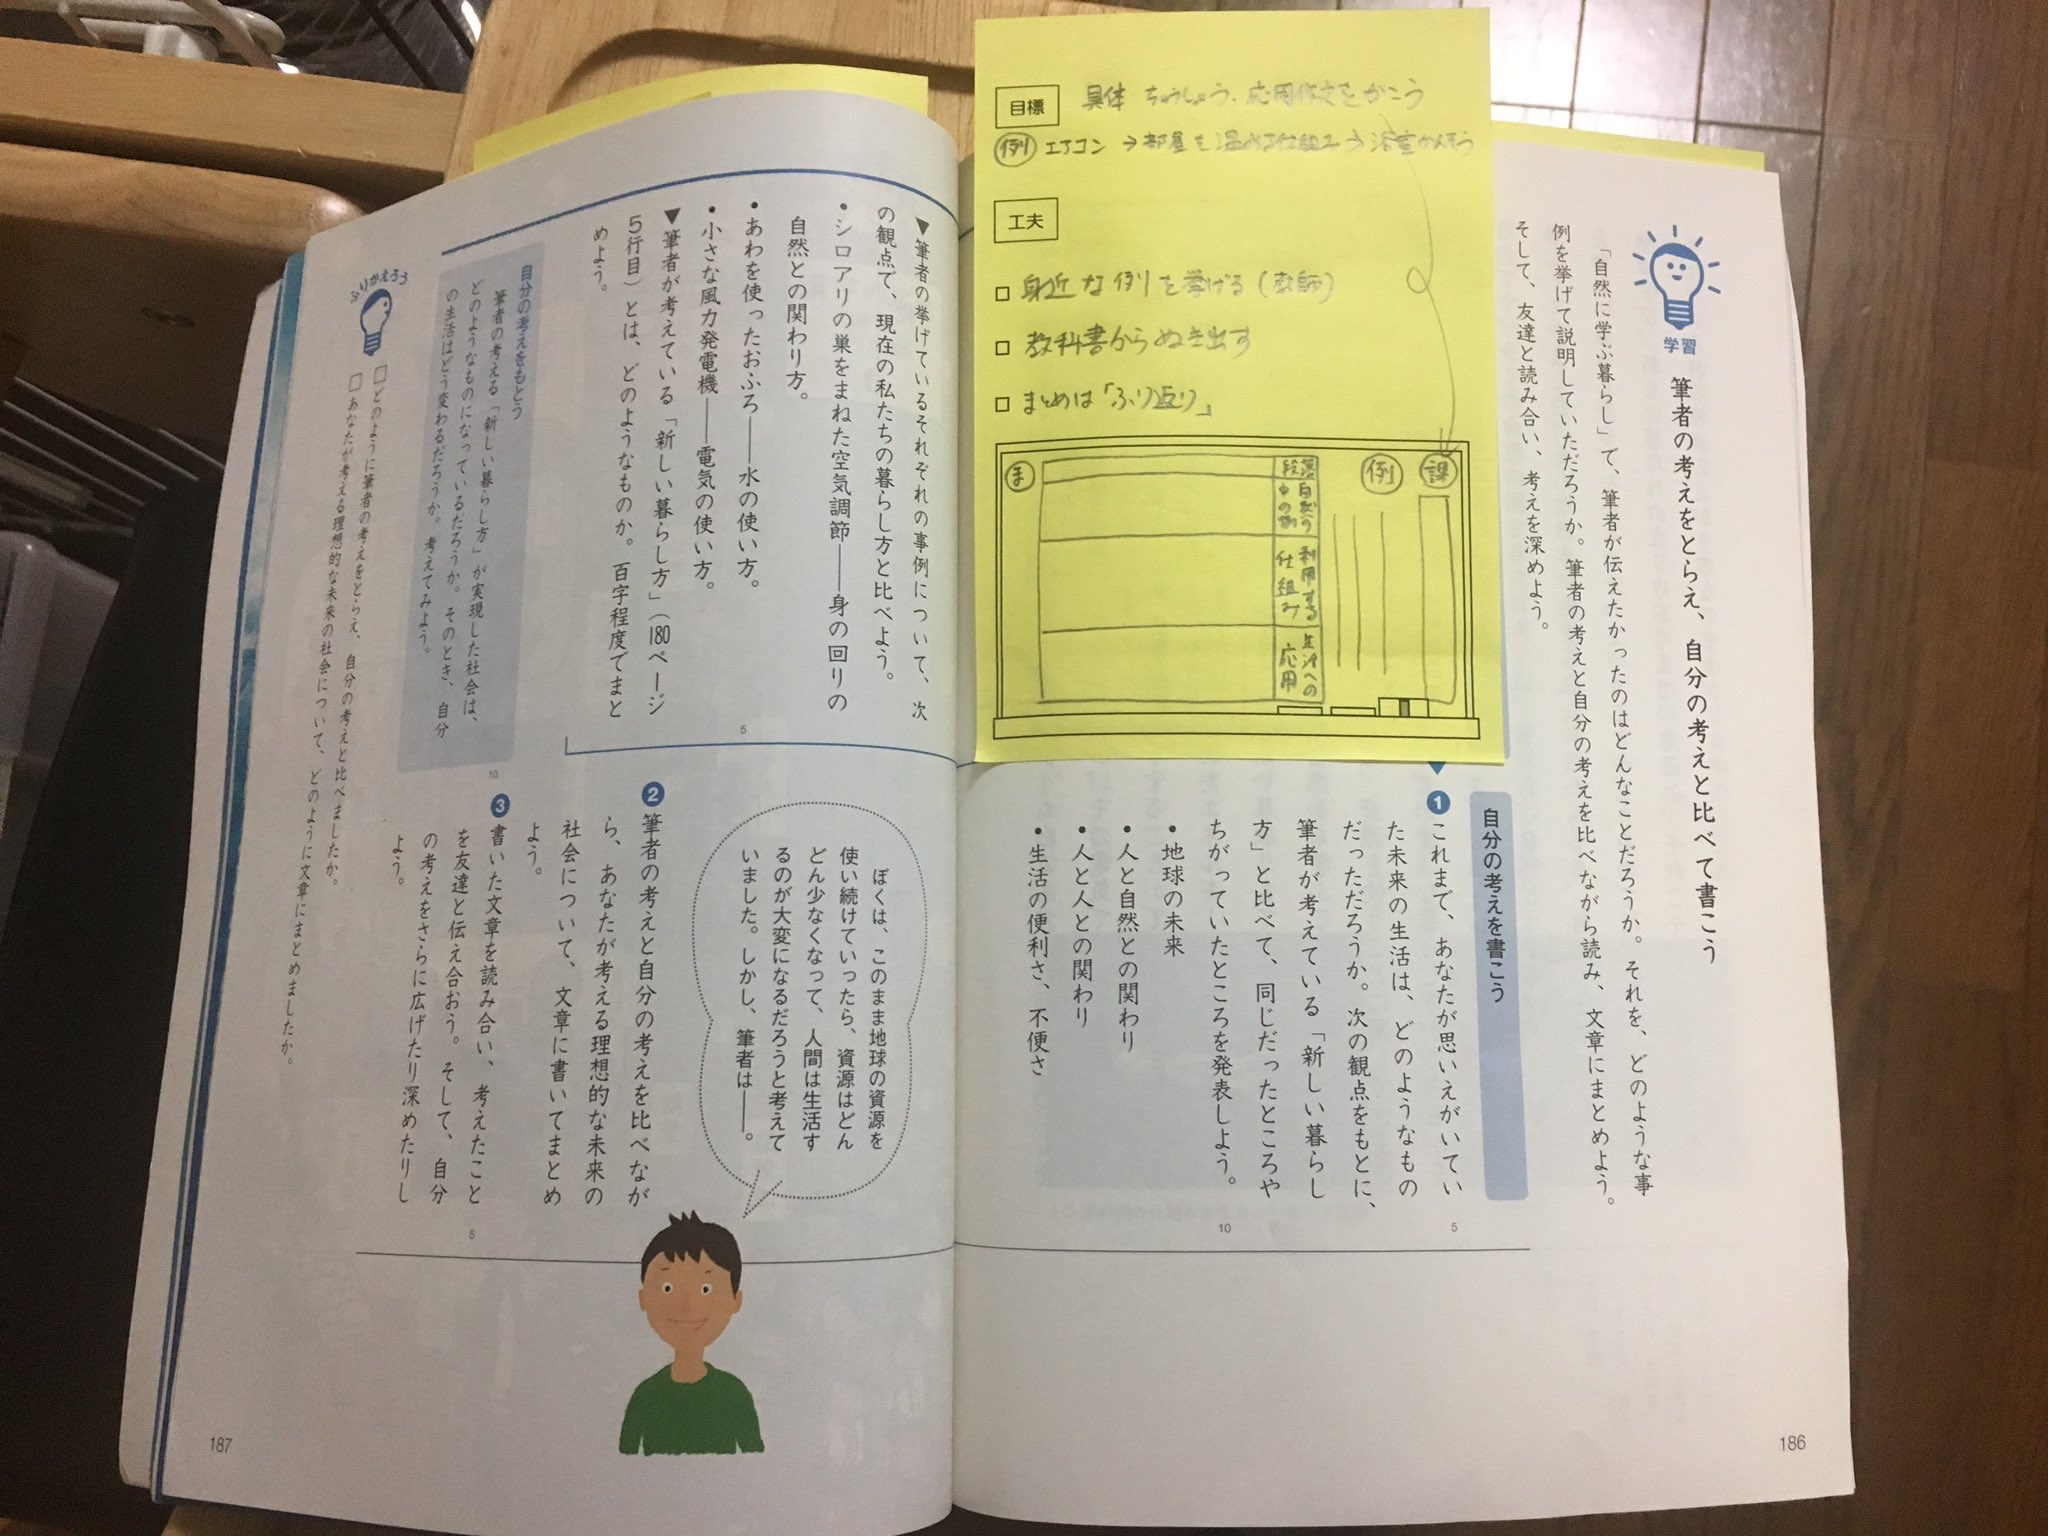 学習
筆者の考えをとらえ、自分の考えと比べて書こう
「自然に学ぶ暮らし」で、筆者が伝えたかったのはどんなことだろうか。それを、どのような事
例を挙げて説明していただろうか。筆者の考えと自分の考えを比べながら読み、文章にまとめよう。
そして、友達と読み合い、考えを深めよう。
目標
具体 ちゅうしょう、応用作文をかこう
例 エアコン→部屋を温める仕組み→浴室かんそう
工夫
□ 身近な例を挙げる(教師)
□ 教科書からぬき出す
□ まとめは「ふり返り」
課
例
段落
自然の中の例
利用する仕組み
生活への応用
ま
自分の考えを書こう
1 これまで、あなたが思いえがいてい
た未来の生活は、どのようなもの
だっただろうか。次の観点をもとに、
筆者が考えている「新しい暮らし
方」と比べて、同じだったところや
ちがっていたところを発表しよう。
・地球の未来
・人と自然との関わり
・人と人との関わり
・生活の便利さ、不便さ
5
10
186
▼筆者の挙げているそれぞれの事例について、次
の観点で、現在の私たちの暮らし方と比べよう。
・シロアリの巣をまねた空気調節――身の回りの
自然との関わり方。
・あわを使ったおふろ――水の使い方。
・小さな風力発電機――電気の使い方。
▼筆者が考えている「新しい暮らし方」(180ページ
5行目)とは、どのようなものか。百字程度でまと
めよう。
5
自分の考えをもとう
筆者の考える「新しい暮らし方」が実現した社会は、
どのようなものになっているだろうか。そのとき、自分
の生活はどう変わるだろうか。考えてみよう。
10
ぼくは、このまま地球の資源を
使い続けていったら、資源はどん
どん少なくなって、人間は生活す
るのが大変になるだろうと考えて
いました。しかし、筆者は――。
2 筆者の考えと自分の考えを比べなが
ら、あなたが考える理想的な未来の
社会について、文章に書いてまとめ
よう。
3 書いた文章を読み合い、考えたこと
を友達と伝え合おう。そして、自分
の考えをさらに広げたり深めたりし
よう。
5
ふりかえろう
□どのように筆者の考えをとらえ、自分の考えと比べましたか。
□あなたが考える理想的な未来の社会について、どのように文章にまとめましたか。
187